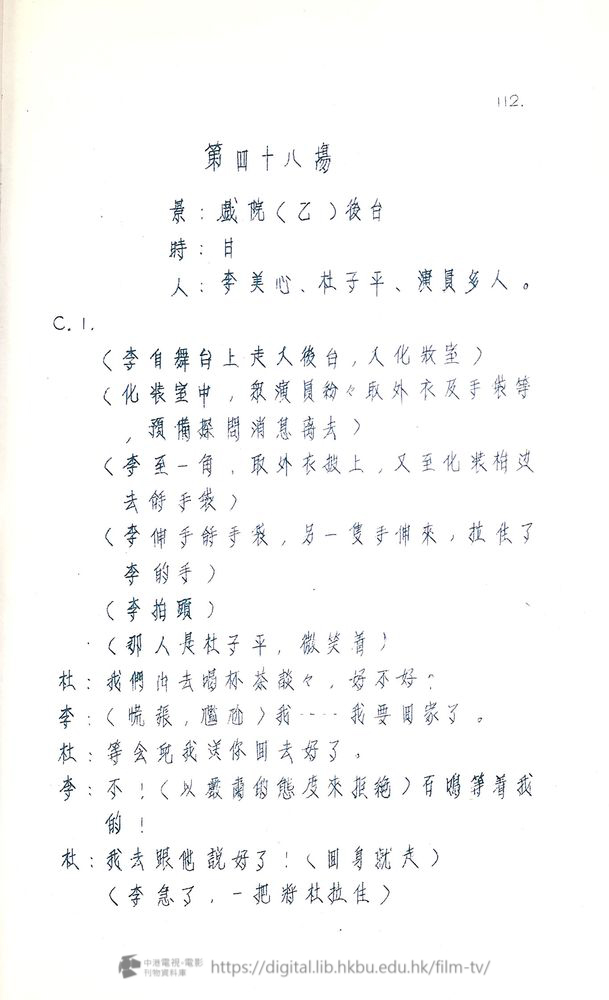 112.
第四十八場
景：戲院（乙）後台
時：日
人：李美心、杜子平、演員多人。
C. 1.
（李自舞台上走入後台，入化妝室）
（化裝室中，眾演員紛々取外衣及手袋等
，預備探問消息离去）
（李至一角，取外衣披上，又至化裝枱边
去餙手袋）
（李伸手餙手袋，另一隻手伸來，拉住了
李的手）
（李抬頭）
（那人是杜子平，微笑着）
杜：我們出去喝杯茶談々，好不好？
李：（慌張，尷尬）我……我要回家了。
杜：等会兒我送你回去好了。
李：不！（以嚴肅的態度來拒絕）百鳴等着我
的！
杜：我去跟他說好了！（回身就走）
（李急了，一把將杜拉住）
中港電視・電影
刊物資料庫
https://digital.lib.hkbu.edu.hk/film-tv/